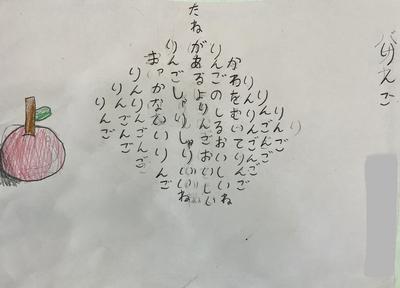 りんご
りんご
りんごんご
りんりんごんご
かわをむいてりんご
りんごのしるおいしいね
たねがあるよりんごおいしい
りんごしゃりしゃりいいね
りんご
りんりんごんご
りんごんご
りんご